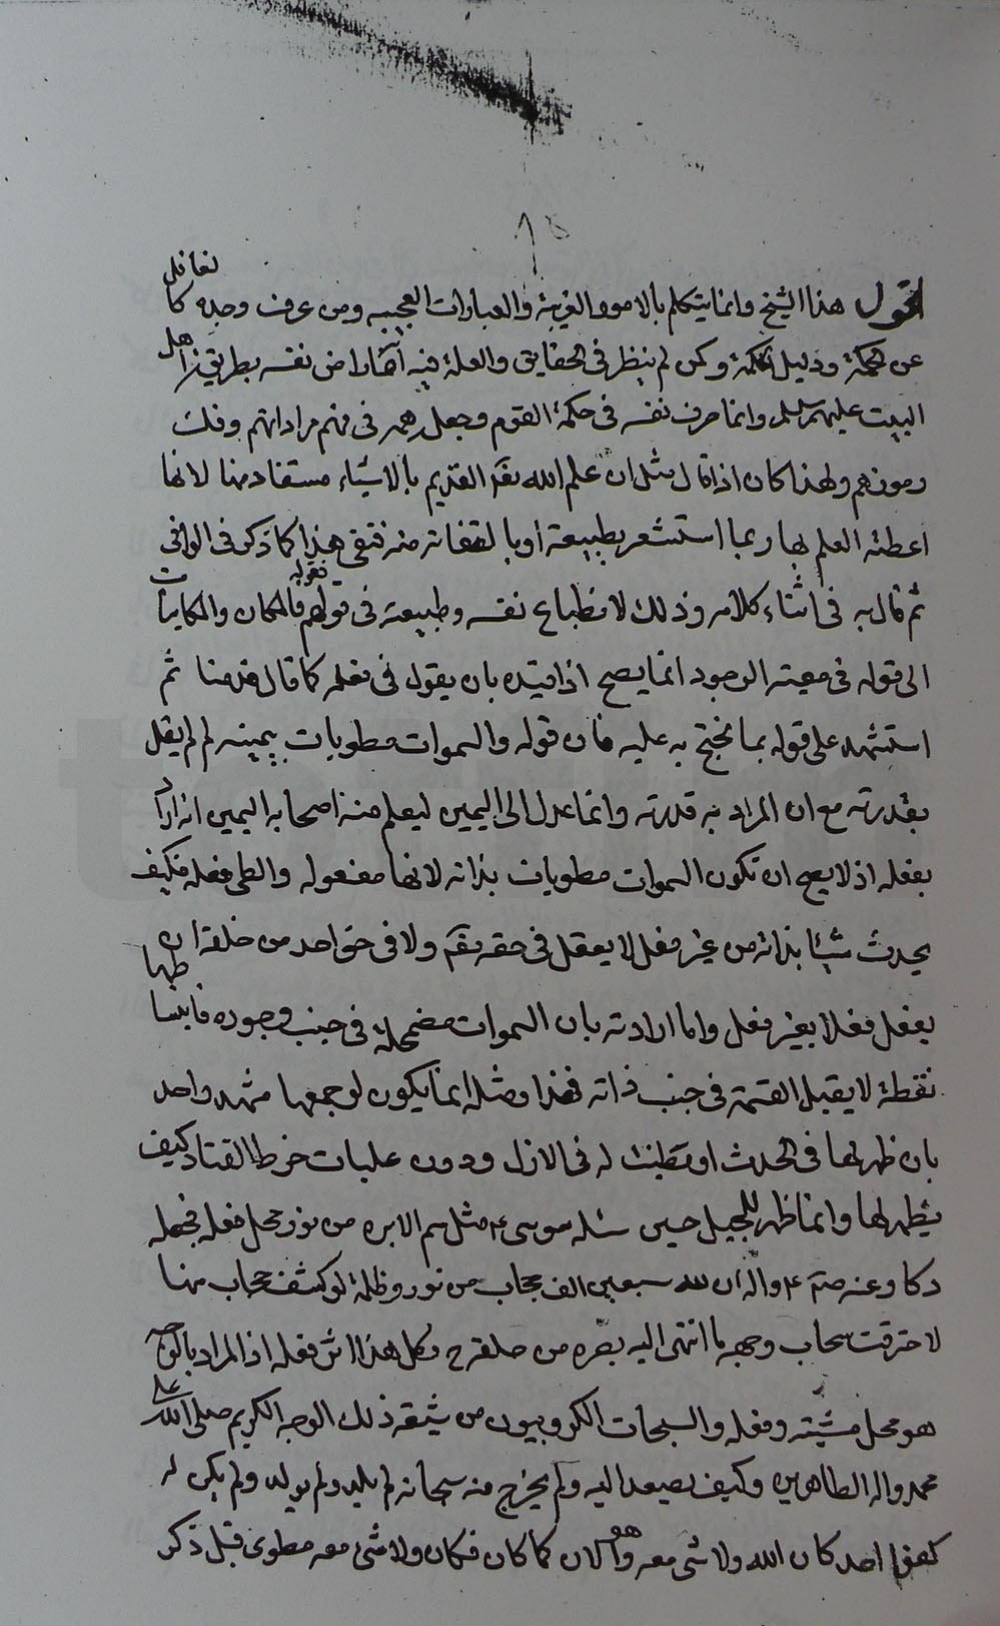 اقول هذا الشيخ وانما يتكلم بالامور الغريبة والعبارات العجيبة ومن عرف وجده كا
تغافل
عن الحكمة ودليل الحكمة وكمن لم ينظر فى الحقايق والعلة فيه انه ما راض نفسه بطريق اهل
البيت عليهم السلم وانما صرف نفسه فى حكمة القوم وجعل همه فى فهم مراداتهم وفك
رموزهم ولهذا كان اذا قال مثل ان علم الله تعالى القديم بالاشياء مستفاد منها لانها
اعطته العلم بها ربما استشعر بطبيعته او بالتفاته منه فنفى هذا كما ذكر فى الوافى
ثم قال به فى اثناء كلامه وذلك لانطباع نفسه وطبيعته فى قولهم فالمكان والمكانيات
بقوله
الى قوله فى معيته الوجود انما يصح اذا قيده بان يقول فى فعله كما قال هنا ثم
استشهد على قوله بما نحتج به عليه فان قوله والسموات مطويات بيمينه لم لم يقل
بقدرته مع ان المراد به قدرته وانما عدل الى اليمين ليعلم منه اصحابه اليمين انه اراد
بفعله اذ لا يصح ان تكون السموات مطويات بذاته لانها مفعوله والطى فعله فكيف
يحدث شيئا بذاته من غير فعل لا يعقل فى حقه تعالى ولا فى حق احد من خلقه ان
يفعل فعلا بغير فعل واما ارادته بان السموات مضمحلة فى جنب وجوده فانها
نقطة لا يقبل القسمة فى جنب ذاته فهذا ومثله انما يكون لو جمعها مشهد واحد
بان ظهر لها فى الحدث او له فى الازل ودون عليات خرط القتاد كيف
يظهر لها وانما ظهر للجبل حين سئله موسى ع مثل سم الابره من نور محل فعله فجعله
دكا وعنه ص ع واله ان لله سبعين الف حجاب من نور وظلمة لو كشف حجاب منها
لاحترقت سبحات وجهه ما انتهى اليه بصره من خلقه وكل هذا اثر فعله اذ المراد بالوجه
هو محل مشيته وفعله والسبحات الكروبيون من شيعة ذلك الوجه الكريم صلى الله على
محمد واله الطاهرين وكيف يصعد اليه ولم يخرج منه سبحانه لم يلد ولم يولد ولم يكن له
كفوا احد كان الله ولا شى معه وهو الان كما كان فكان ولا شئ معه مطوى قبل ذكر